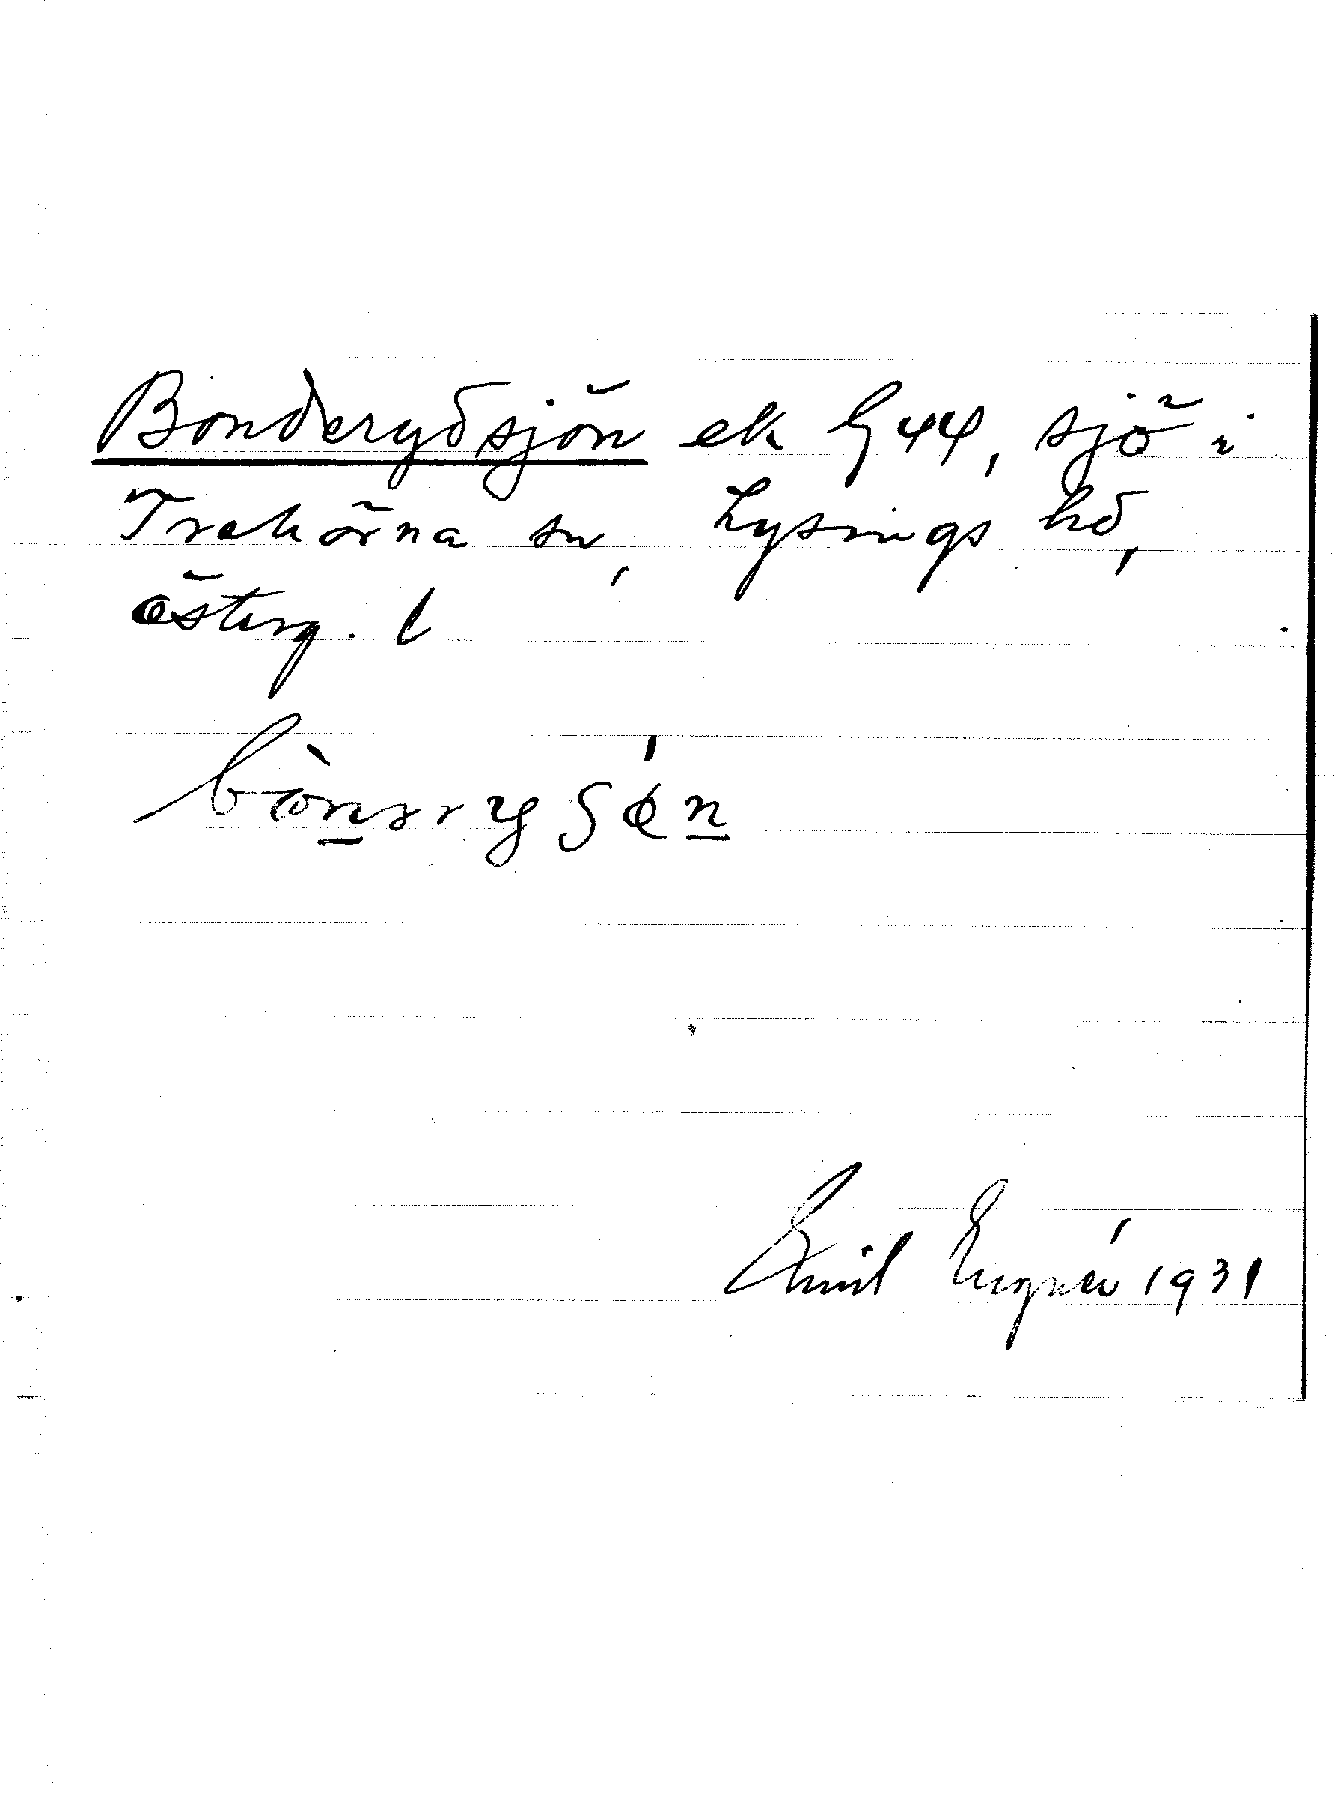 Bonderydsjön ek G44, sjö i
Trehörna sn, Lysings hd,
österg. l
bònəryʃǿn
Emil Eugnér 1931